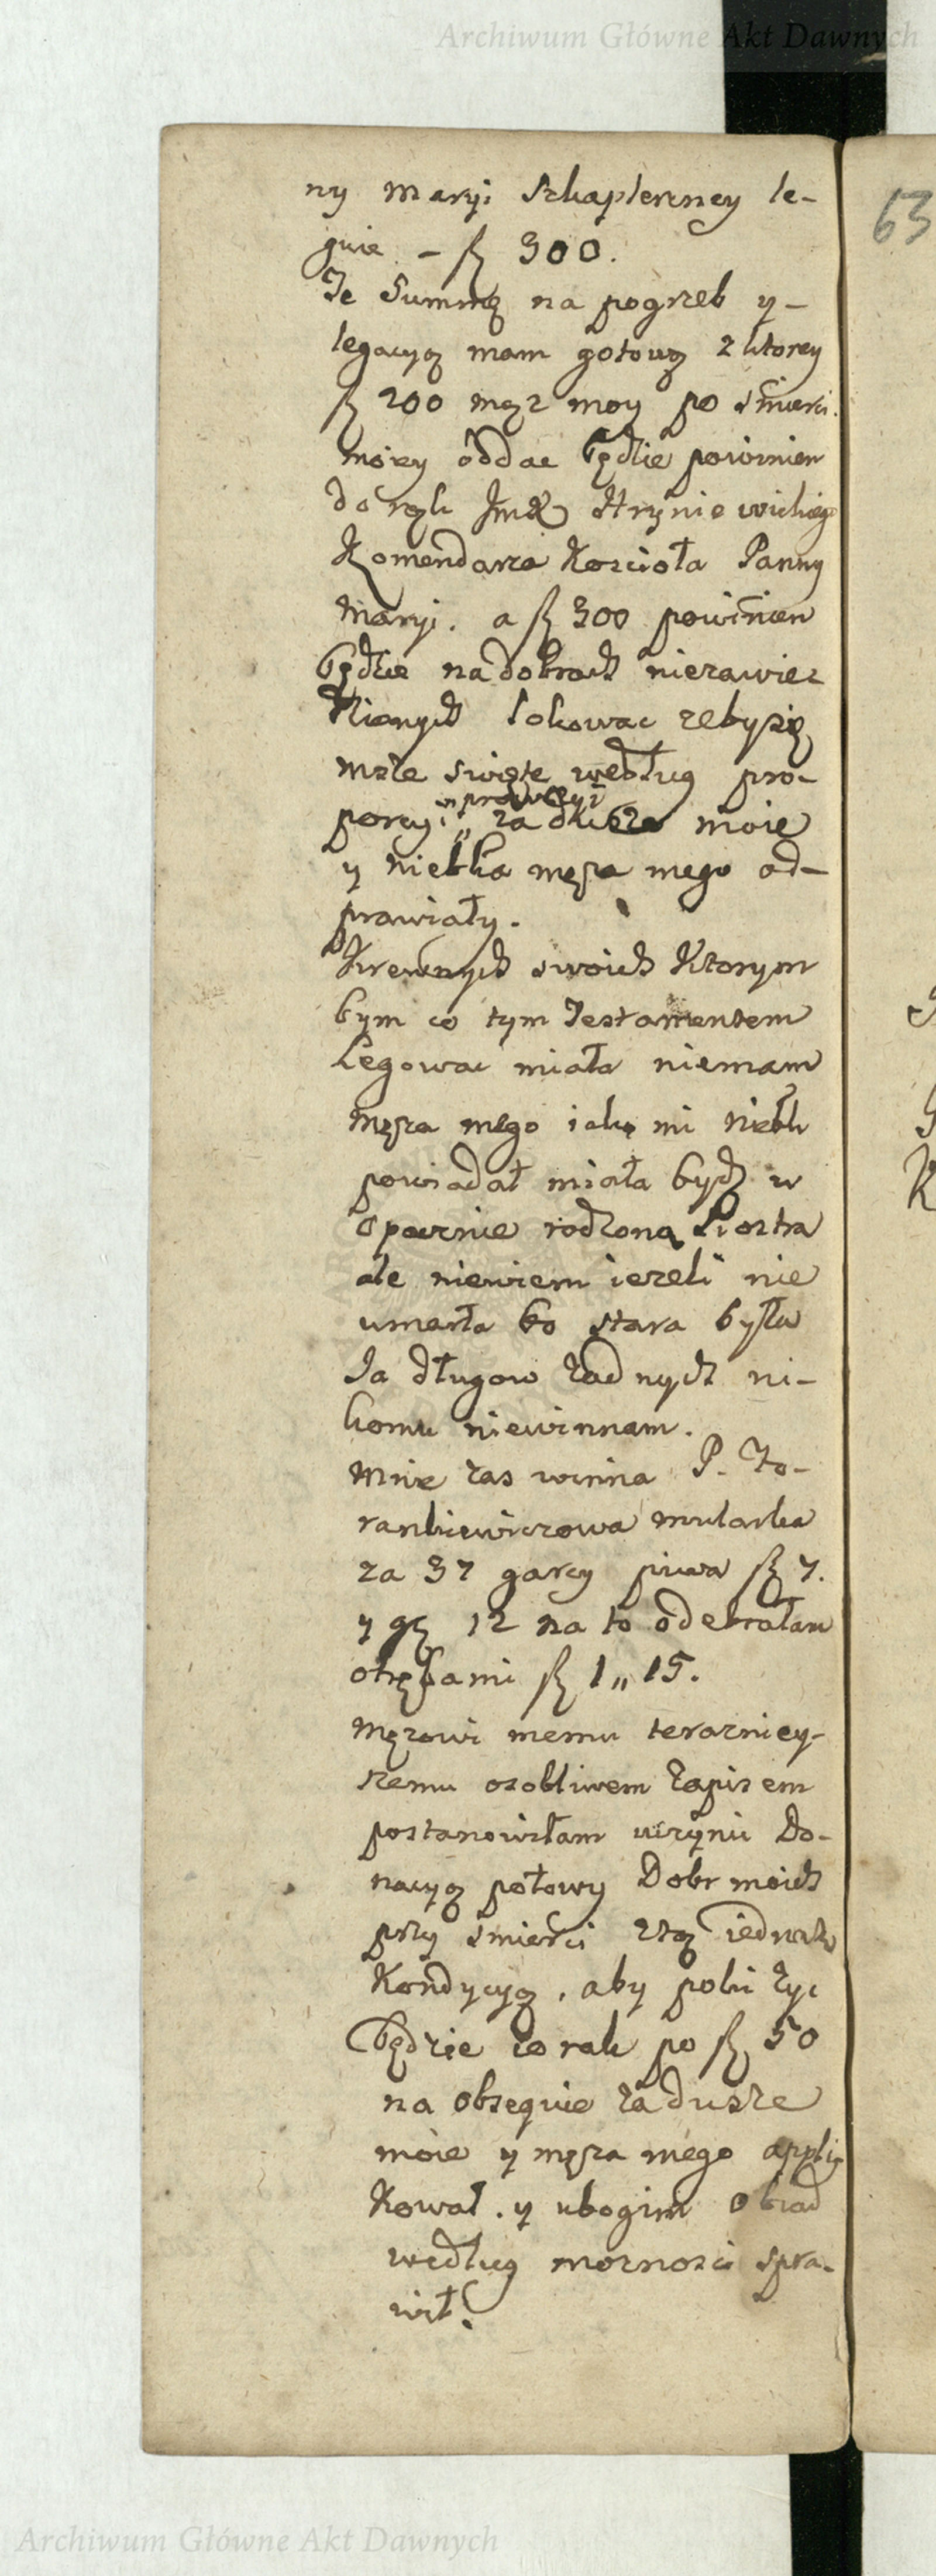 Archiwum Główne Akt Dawnych
ny Maryi Szkaplerzney le-
guie - fl 300.
Te Summę na pogrzeb y-
legacyą mam gotową z ktorey
fl 200 mąz moy po smierci
moiey oddac będzie powinien
do rąk Jmć Hryniewickiego
Komendarza Koscioła Panny
Maryi. a fl 300 powinien
będzie na dobrach niezawie
dzionych lokowac zebysię
msze swięte według pro-
porcyi „ za dusze moie
y niebka męza mego od-
prawiały.
Krewnych swoich Ktorym
bym co tym Testamentem
Legowac miała niemam
męza mego iako mi niebk
powiadał miała bydz w
Opocznie rodzona Siostra
ale niewiem iezeli nie
umarła bo stara była
Ja długow zadnych ni-
komu niewinnam.
Mnie zas winna P. To-
rankiewiczowa mularka
za 37 garcy piwa fl 7.
y gr 12 na to odebrałam
otrębami fl 1„15.
Męzowi memu terazniey-
szemu osobliwem zapisem
postanowiłam uczynic Do-
nacyą połowy Dobr moich
przy smierci z tą iednak
Kondycyą, aby poki zyc
będzie co rok po fl 50
na obsequie za dusze
moie y męza mego appli
kował. y ubogim obiad
według moznosci spra-
wił.
63
Archiwum Główne Akt Dawnych